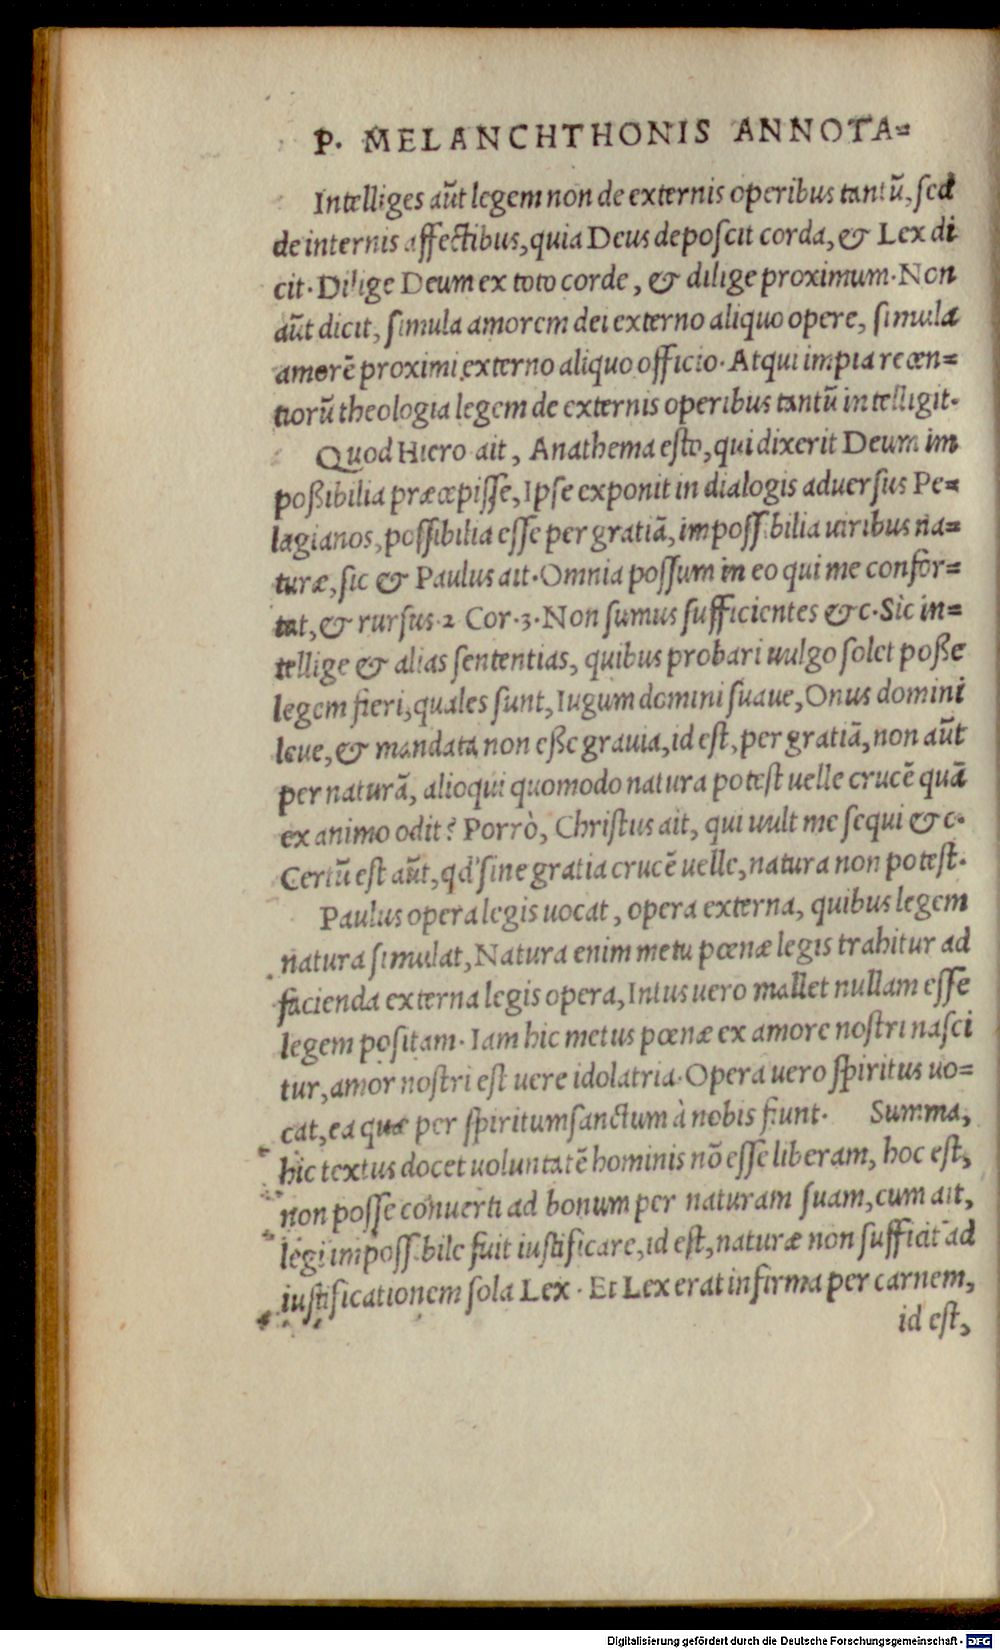 P. MELANCHTHONIS ANNOTA=
Intelliges aũt legem non de externis operibus tantũ, sed
de internis affectibus, quia Deus deposcit corda, & Lex di
cit. Dilige Deum ex toto corde, & dilige proximum. Non
aũt dicit, simula amorem dei externo aliquo opere, simula
amorẽ proximi externo aliquo officio. Atqui impia recen=
tiorũ theologia legem de externis operibus tantũ intelligit.
Quod Hiero ait, Anathema esto, qui dixerit Deum im
poßibilia præcepisse, Ipse exponit in dialogis aduersus Pe=
lagianos, possibilia esse per gratiã, impossibilia uiribus na=
turæ, sic & Paulus ait. Omnia possum in eo qui me confor=
tat, & rursus. 2 Cor. 3. Non sumus sufficientes &c. Sic in=
tellige & alias sententias, quibus probari uulgo solet poße
legem fieri, quales sunt, Iugum domini suaue, Onus domini
leue, & mandata non eße grauia, id est, per gratiã, non aũt
per naturã, alioqui quomodo natura potest uelle crucẽ quã
ex animo odit? Porrò, Christus ait, qui uult me sequi &c.
Certũ est aũt, qd' sine gratia crucẽ uelle, natura non potest.
Paulus opera legis uocat, opera externa, quibus legem
natura simulat, Natura enim metu pœnæ legis trahitur ad
facienda externa legis opera, Intus uero mallet nullam esse
legem positam. Iam hic metus pœnæ ex amore nostri nasci
tur, amor nostri est uere idolatria. Opera uero spiritus uo=
cat, ea quæ per spiritumsanctum à nobis fiunt. Summa,
hic textus docet uoluntatẽ hominis nõ esse liberam, hoc est,
non posse conuerti ad bonum per naturam suam, cum ait,
legi impossibile fuit iustificare, id est, naturæ non sufficit ad
iustificationem sola Lex. Et Lex erat infirma per carnem,
id est,
Digitalisierung gefördert durch die Deutsche Forschungsgemeinschaft - DFG